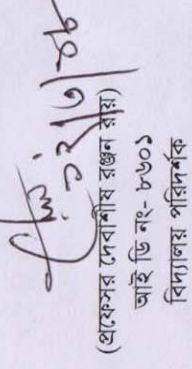 (প্রফেসর দেবাশীষ রঞ্জন রায়)
আই ডি নং- ৮৬০১
বিদ্যালয় পরিদর্শক